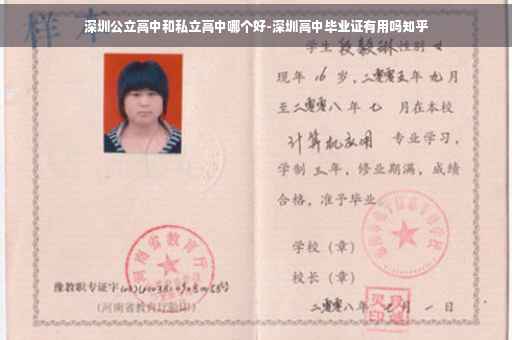 深圳公立高中和私立高中哪个好-深圳高中毕业证有用吗知乎
样本
学生段毅琳性别女
现年16岁，二零零五年九月
至二零零八年七月在本校
计算机应用 专业学习，
学制三年，修业期满，成绩
合格，准予毕业。
学校（章）
校长（章）
二零零八年七月一日
河南省教育厅
豫教职专证字
（河南省教育厅验印）